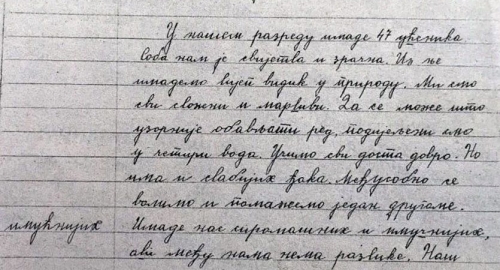 У нашем разреду имаде 47 ученика
Соба нам је свијетла и зрачна. Из ње
имадемо лијеп видик у природу. Ми смо
сви сложни и марљиви. Да се може што
узорније обављати ред, подијељени смо
у четири вода. Учимо сви доста добро. Но
има и слабијих ђака. Међусобно се
волимо и помажемо један другоме.
имућнијих Имаде нас сиромашних и имућнијих,
али међу нама нема разлике. Наш